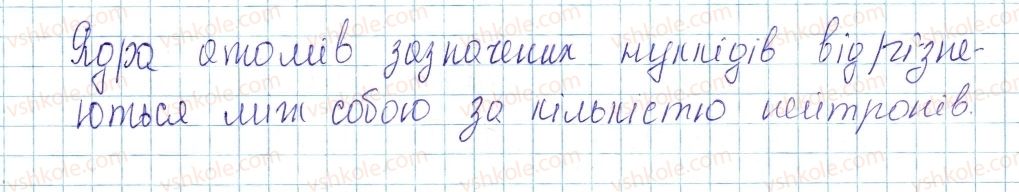 Ядра атомів зазначених нуклідів відрізня-
ються між собою за кількістю нейтронів.